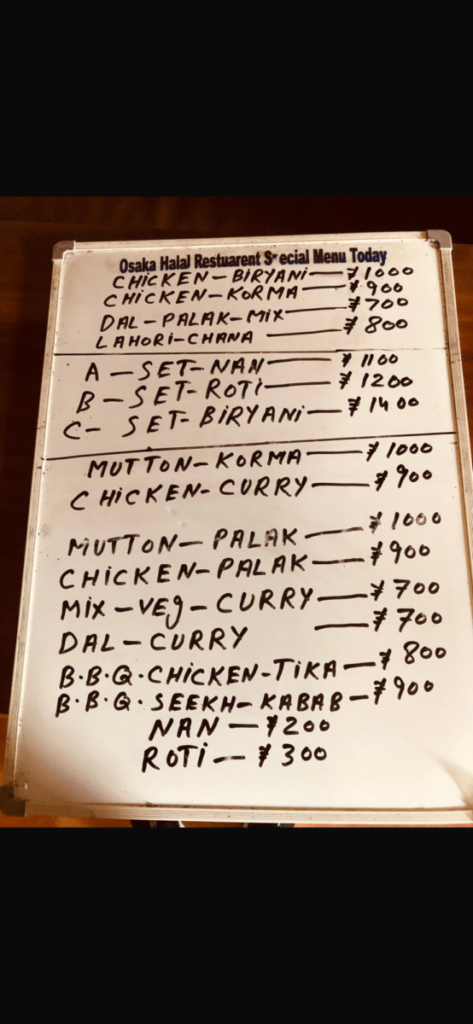 Osaka Halal Restuarent Special Menu Today
CHICKEN-BIRYANI — ¥1000
CHICKEN-KORMA — ¥900
DAL-PALAK-MIX — ¥700
LAHORI-CHANA — ¥800
A — SET-NAN — ¥1100
B — SET-ROTI — ¥1200
C- SET-BIRYANI — ¥1400
MUTTON-KORMA — ¥1000
CHICKEN-CURRY — ¥900
MUTTON-PALAK — ¥1000
CHICKEN-PALAK — ¥900
MIX-VEg-CURRY — ¥700
DAL-CURRY — ¥700
B.B.Q.CHICKEN-TIKA — ¥800
B.B.Q.SEEKH-KABAB — ¥900
NAN — ¥200
ROTI — ¥300